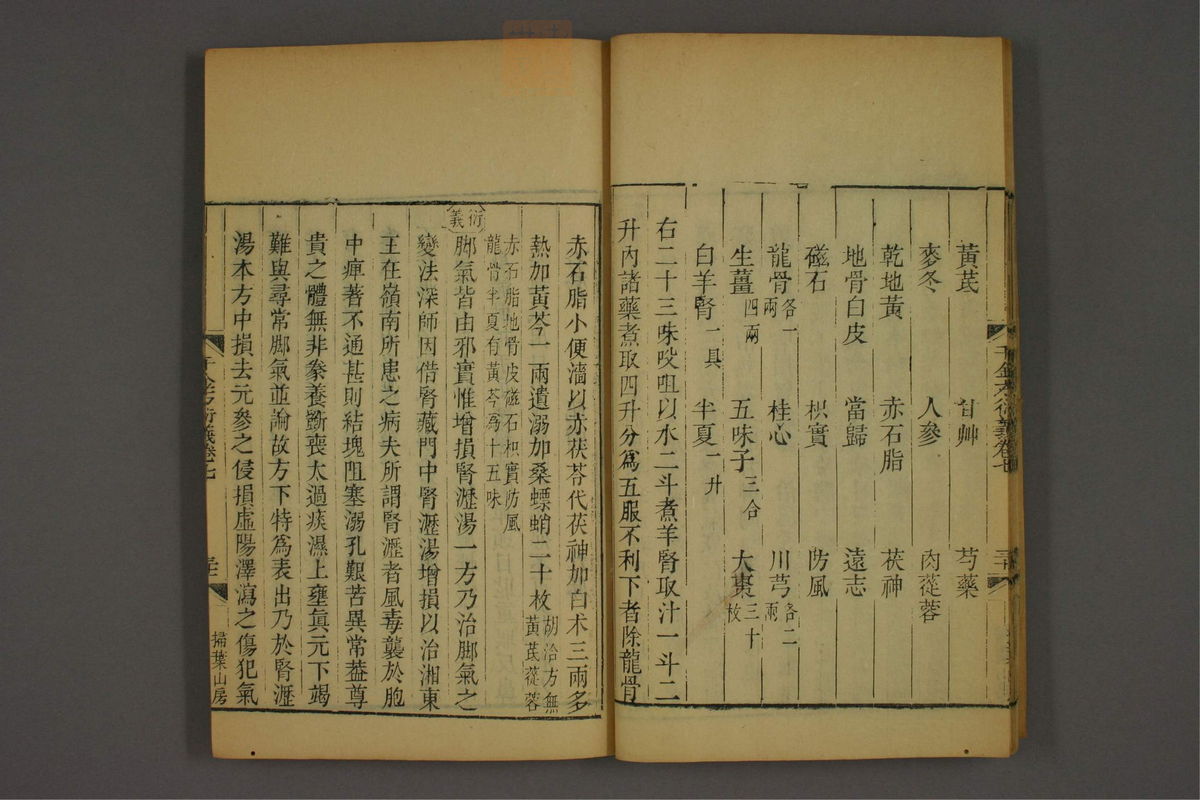 黃芪 甘艸 芍藥
麥冬 人參 肉蓯蓉
乾地黃 赤石脂 茯神
地骨白皮 當歸 遠志
磁石 枳實 防風
龍骨各一兩 桂心 川芎各二兩
生薑四兩 五味子三合 大棗三十枚
白羊腎一具 半夏一升
右二十三味㕮咀以水二斗煮羊腎取汁一斗二
升內諸藥煮取四升分爲五服不利下者除龍骨
赤石脂小便濇以赤茯苓代茯神加白朮三兩多
熱加黃芩一兩遺溺加桑螵蛸二十枚胡洽方無黃芪蓯蓉
赤石脂地骨皮磁石枳實防風龍骨半夏有黃芩爲十五味
衍義
脚氣皆由邪實惟增損腎瀝湯一方乃治脚氣之
變法深師因借腎藏門中腎瀝湯增損以治湘東
王在嶺南所患之病夫所謂腎瀝者風毒襲於胞
中痺著不通甚則結塊阻塞溺孔艱苦異常葢尊
貴之體無非豢養斲喪太過痰濕上壅眞元下竭
難與尋常脚氣並論故方下特爲表出乃於腎瀝
湯本方中損去元參之侵損虛陽澤瀉之傷犯氣
千金方衍義卷七
掃葉山房